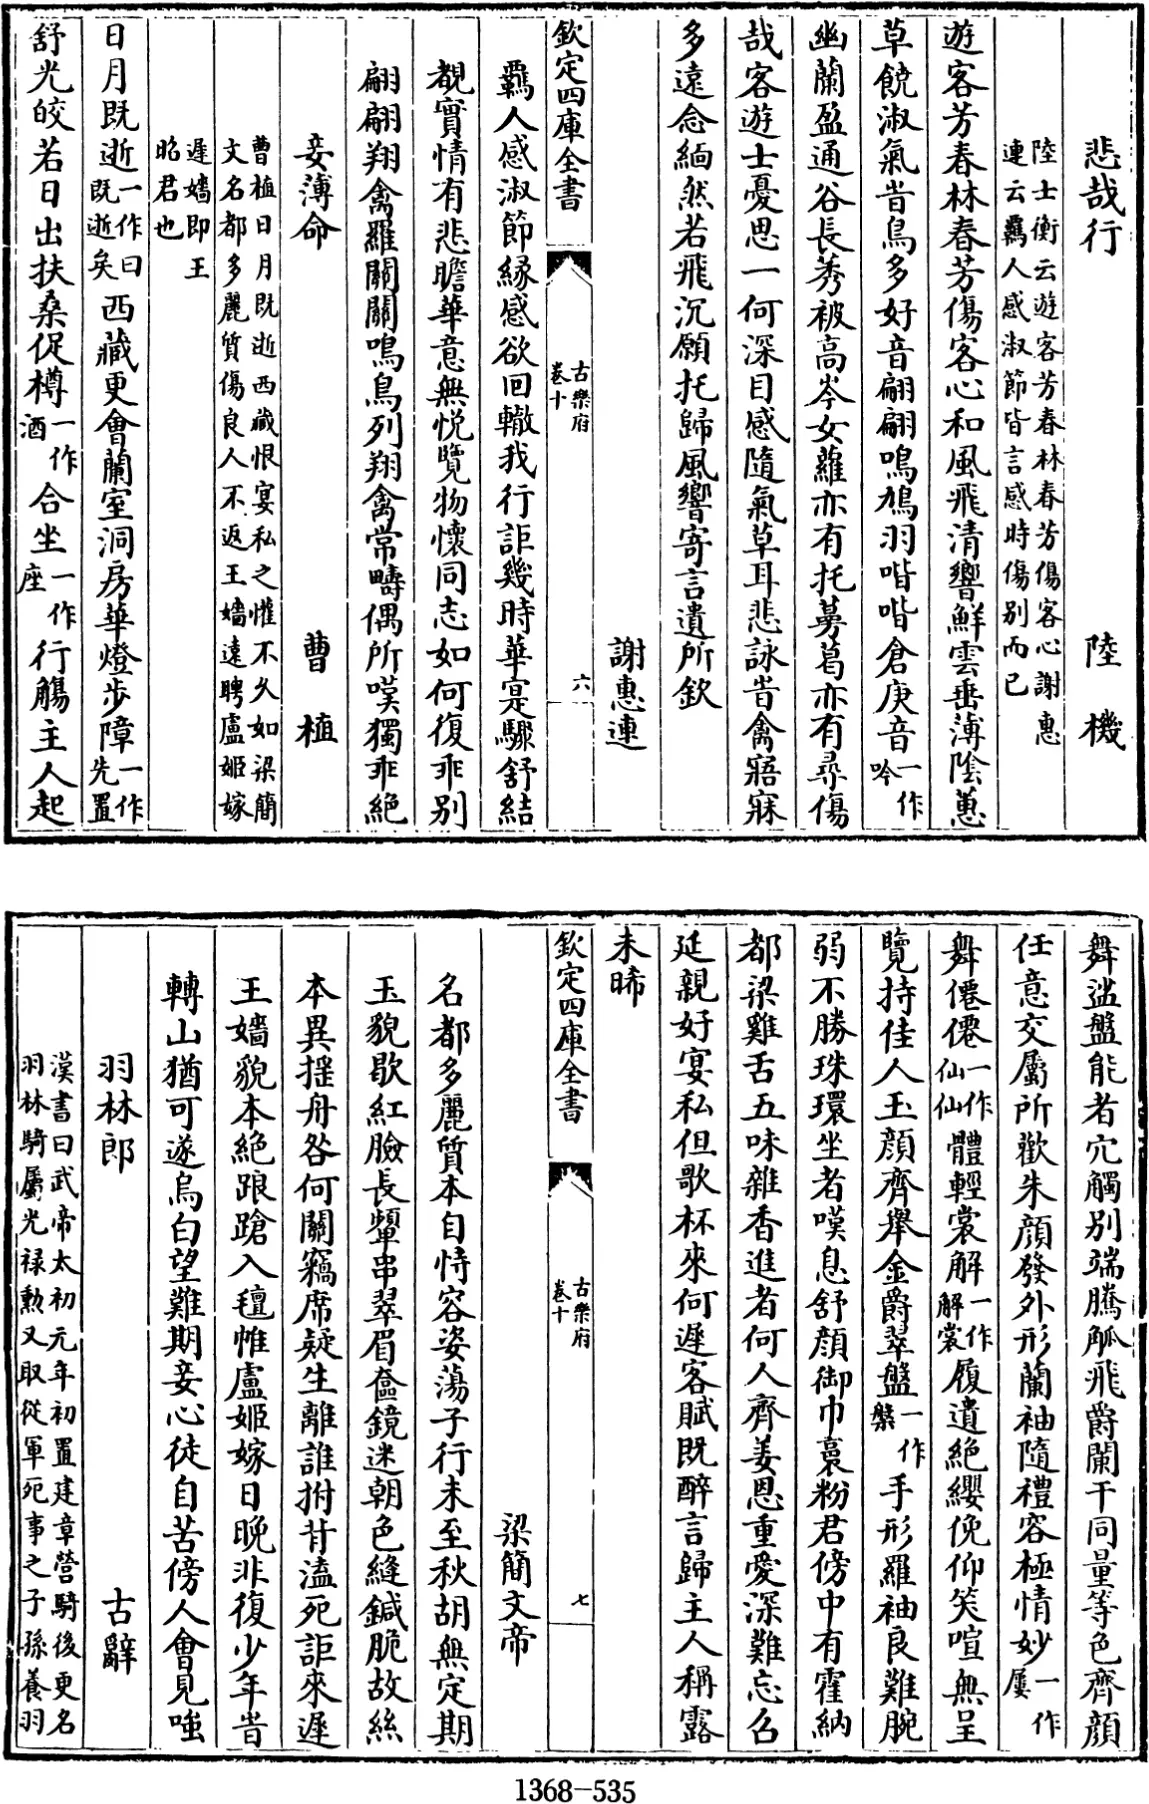 悲哉行 陸機
陸士衡云遊客芳春林春芳傷客心謝惠
連云羈人感淑節皆言感時傷别而已
遊客芳春林春芳傷客心和風飛清響鮮雲垂薄隂蕙
草饒淑氣旹鳥多好音翩翩鳴鳩羽喈喈倉庚音一作吟
幽蘭盈通谷長莠被高岑女蘿亦有托蔓葛亦有尋傷
哉客遊士憂思一何深目感隨氣草耳悲詠旹禽寤寐
多遠念緬然若飛沉願托歸風響寄言遺所欽
謝惠連
欽定四庫全書
古樂府
卷十
六
羈人感淑節縁感欲回轍我行詎幾時華寔驟舒結
覩實情有悲瞻華意無悦覽物懷同志如何復乖别
翩翩翔禽羅關關鳴鳥列翔禽常疇偶所嘆獨乖絶
妾薄命 曹植
曹植日月既逝西藏恨宴私之懽不久如梁簡
文名都多麗質傷良人不返王嬙遠聘盧姬嫁
遲嬙即王
昭君也
日月既逝一作曰既逝矣西藏更會蘭室洞房華燈步障一作先置
舒光皎若日出扶桑促樽一作酒合坐一作座行觴主人起
舞盤盤能者宂觸别端騰觚飛爵闌干同量等色齊顔
任意交屬所歡朱顔發外形蘭袖隨禮容極情妙一作屢
舞僊僊一作仙仙體輕裳解一作解裳履遺絶纓俛仰笑喧無呈
覽持佳人玉顔齊舉金爵翠盤一作槃手形羅袖良難腕
弱不勝珠環坐者嘆息舒顔御巾裛粉君傍中有霍納
都梁雞舌五味雜香進者何人齊姜恩重愛深難忘召
延親好宴私但歌杯來何遲客賦既醉言歸主人稱露
未晞
欽定四庫全書
古樂府
卷十
七
梁簡文帝
名都多麗質本自恃容姿蕩子行未至秋胡無定期
玉貌歇紅臉長顰串翠眉奩鏡迷朝色縫鍼脆故絲
本異揺舟咎何關竊席疑生離誰拊背溘死詎來遲
王嬙貌本絶踉蹌入氊帷盧姬嫁日晩非復少年旹
轉山猶可遂烏白望難期妾心徒自苦傍人會見嗤
羽林郎 古辭
漢書曰武帝太初元年初置建章營騎後更名
羽林騎屬光禄勲又取從軍死事之子孫養羽
1368-535